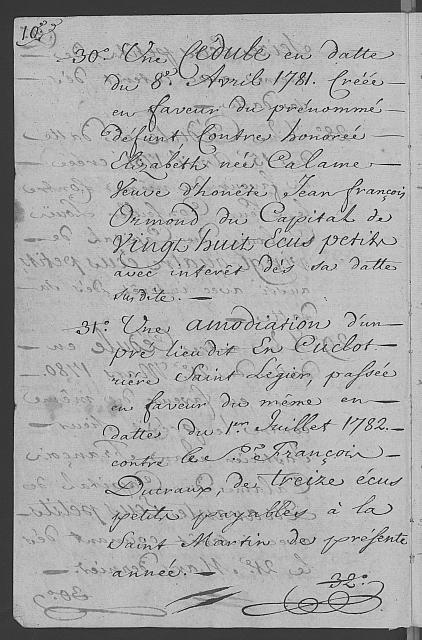 10.
30.° Une Cédule en datte
du 8.e Avril 1781. Créée
en faveur du prénommé
défunt Contre honorée
Elizabeth née Calame
Veuve d'honête Jean françois
Ormond du Capital de
Vingt huit Ecus petits
avec intérêt dés sa datte
susdite.
31.° Une amodiation d'un
pré lieudit En Cuclot
rière Saint Légier, passée
en faveur du même en
datte du 1.er Juillet 1782.
contre le S.r François
Ducraux, de treize écus
petits payables à la
Saint Martin de présente
année.
32.°